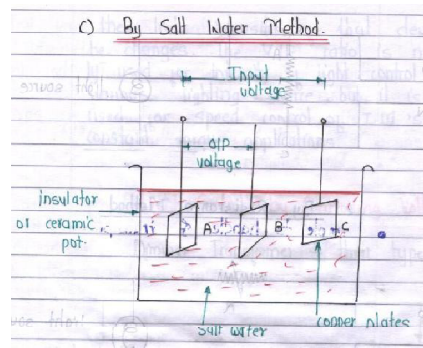 c) By Salt Water Method.
Input
voltage
O/P
voltage
insulator
or ceramic
pot.
A
B
C
salt water
copper plates